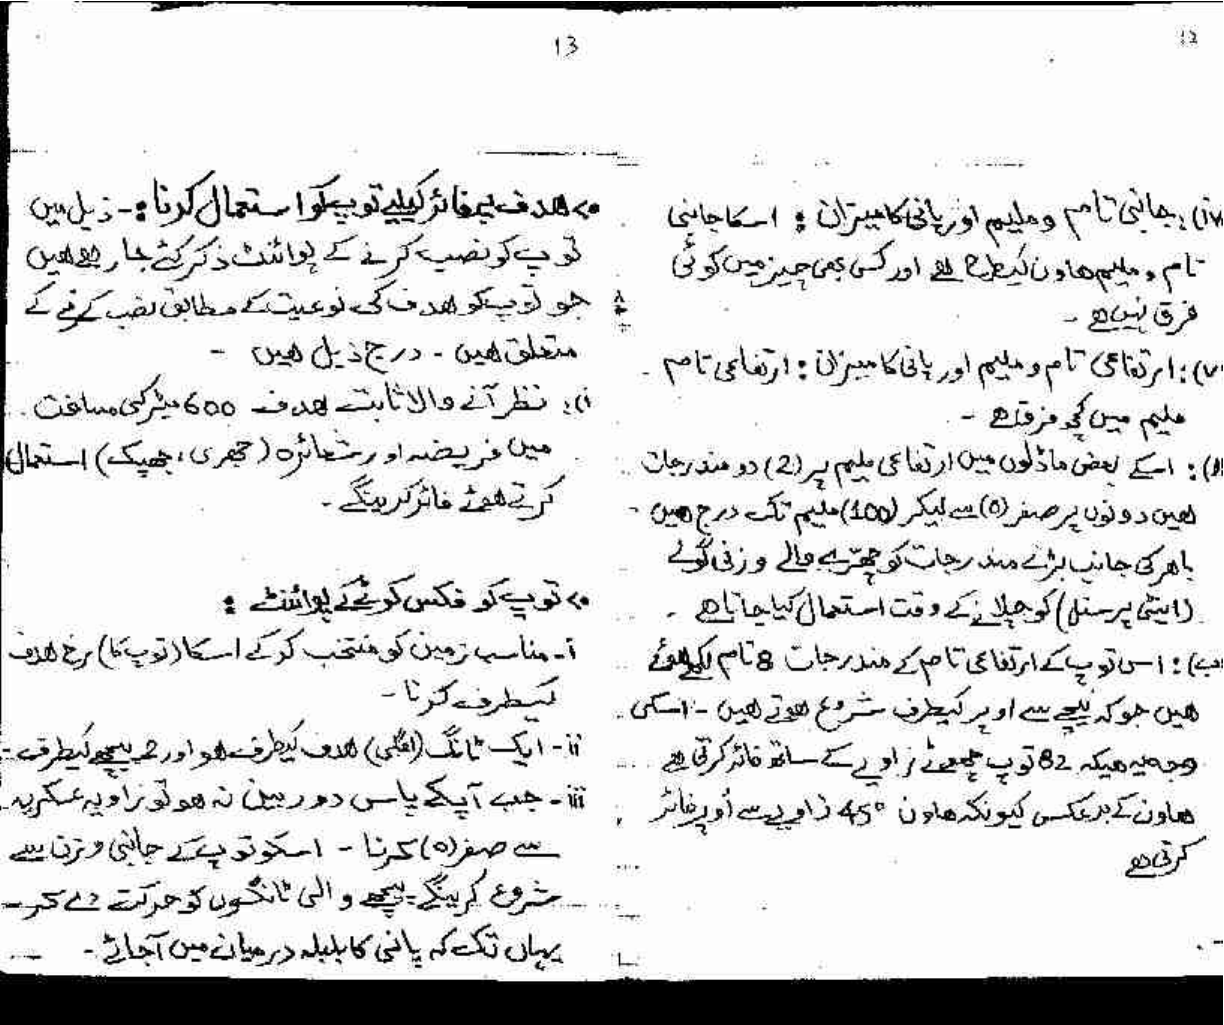 12
(iv): جانبی تام و ملیم اور پانی کا میزان : اسکا جانبی
تام و ملیم ھاون کیطرح ھے اور کسی بھی چیز میں کوئی
فرق نہیں ھے ۔
(v): ارتفاعی تام و ملیم اور پانی کا میزان : ارتفاعی تام
ملیم میں کچھ فرق ھے ۔
: اسکے بعض ماڈلوں میں ارتفاعی ملیم پر (2) دو مندرجات
ھیں دونوں پر صفر (0) سے لیکر (100) ملیم تک درج ھیں ۔
باھر کی جانب بڑے مندرجات کو چھرے والے وزنی گولے
(اینٹی پرسنل) کو چلانے کے وقت استعمال کیا جاتا ھے ۔
(ب): اس توپ کے ارتفاعی تام کے مندرجات 8 تام لکھے ھوئے
ھیں جو کہ نیچے سے اوپر کیطرف شروع ھوتے ھیں ۔ اسکی
وجہ یہ ھیکہ 82 توپ چھوٹے زاویے کے ساتھ فائر کرتی ھے
ھاون کے برعکس کیونکہ ھاون 45° زاویے سے اوپر فائر
کرتی ھے
13
ھدف پر فائر کیلیے توپ کو استعمال کرنا :۔ ذیل میں
توپ کو نصب کرنے کے پوائنٹ ذکر کئے جا رھے ھیں
جو توپ کو ھدف کی نوعیت کے مطابق نصب کرنے کے
متعلق ھیں ۔ درج ذیل ھیں ۔
i): نظر آنے والا ثابت ھدف 600 میٹر کی مسافت
میں فریضہ اور شعائرہ (جھری، جھپک) استعمال
کرتے ھوئے فائر کرینگے ۔
توپ کو فکس کرنے کے پوائنٹ :
i۔ مناسب زمین کو منتخب کر کے اسکا (توپ کا) رخ ھدف
کیطرف کرنا ۔
ii۔ ایک ٹانگ (اگلی) ھدف کیطرف ھو اور 2 پیچھے کیطرف ۔
iii۔ جب آپکے پاس دوربین نہ ھو تو زاویہ عسکریہ
سے صفر (0) کرنا ۔ اسکو توپ کے جانبی وزن سے
شروع کرینگے ۔ پیچھے والی ٹانگوں کو حرکت دے کر ۔
یہاں تک کہ پانی کا بلبلہ درمیان میں آجائے ۔